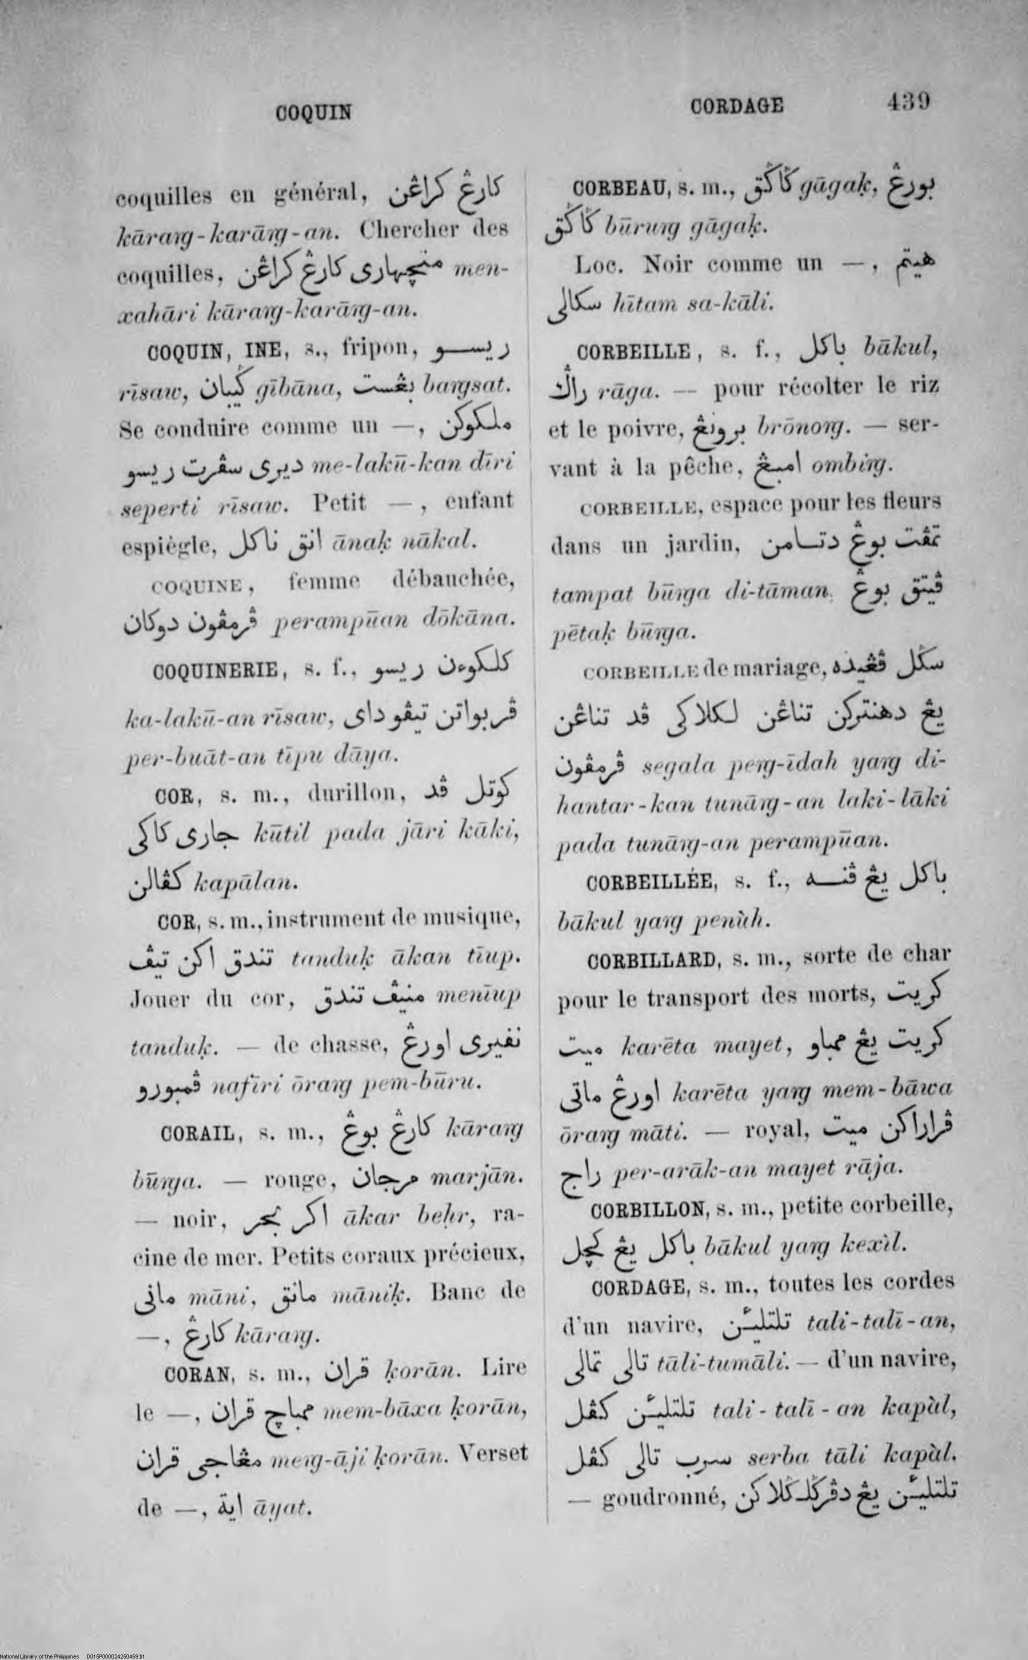 COQUIN
CORDAGE 439
coquilles en général, كارڠ كراڠن
kārarg-karārg-an. Chercher des
coquilles, منچهاری كارڠ كراڠن men-
xahāri kārarg-karārg-an.
COQUIN, INE, s., fripon, ريسو
rīsaw, ڬيبان gībāna, بڠست bargsat.
Se conduire comme un —, ملكوكن
ديری سڤرت ريسو me-lakū-kan dīri
seperti rīsaw. Petit —, enfant
espiègle, انق ناكل ānaḳ nākal.
COQUINE, femme débauchée,
ڤرمڤون دوكان perampūan dōkāna.
COQUINERIE, s. f., كلكوءن ريسو
ka-lakū-an rīsaw, ڤربواتن تيڤو دای
per-buāt-an tīpu dāya.
COR, s. m., durillon, كوتل ڤد
جاری كاكی kūtil pada jāri kāki,
كڤالن kapālan.
COR, s. m., instrument de musique,
تندق اكن تيڤ tanduḳ ākan tīup.
Jouer du cor, منيڤ تندق menīup
tanduḳ. — de chasse, نفيری اورڠ
ڤمبورو nafīri ōrarg pem-būru.
CORAIL, s. m., كارڠ بوڠ kārarg
būrga. — rouge, مرجان marjān.
— noir, اكر بحر ākar beḥr, ra-
cine de mer. Petits coraux précieux,
مانی māni, مانق māniḳ. Banc de
—, كارڠ kārarg.
CORAN, s. m., قران ḳorān. Lire
le —, ممباچ قران mem-bāxa ḳorān,
مڠاجی قران merg-āji ḳorān. Verset
de —, اية āyat.
CORBEAU, s. m., ڬاڬق gāgaḳ, بورڠ
ڬاڬق būrurg gāgaḳ.
Loc. Noir comme un —, هيتم
سكالی hītam sa-kāli.
CORBEILLE, s. f., باكل bākul,
راڬ rāga. — pour récolter le riz
et le poivre, برونڠ brōnorg. — ser-
vant à la pêche, امبڠ ombirg.
CORBEILLE, espace pour les fleurs
dans un jardin, تمڤت بوڠ دتامن
tampat būrga di-tāman, ڤيتق بوڠ
pētaḳ būrga.
CORBEILLE de mariage, سڬل ڤڠيده
يڠ دهنتركن تناڠن لكلاكی ڤد تناڠن
ڤرمڤون segala perg-īdah yarg di-
hantar-kan tunārg-an laki-lāki
pada tunārg-an perampūan.
CORBEILLÉE, s. f., باكل يڠ ڤنه
bākul yarg penùh.
CORBILLARD, s. m., sorte de char
pour le transport des morts, كريت
ميت karēta mayet, كريت يڠ ممباو
اورڠ ماتی karēta yarg mem-bāwa
ōrarg māti. — royal, ڤراراكن ميت
راج per-arāk-an mayet rāja.
CORBILLON, s. m., petite corbeille,
باكل يڠ كچل bākul yarg kexìl.
CORDAGE, s. m., toutes les cordes
d'un navire, تلتليئن tali-talī-an,
تالی تمالی tāli-tumāli. — d'un navire,
تلتليئن كڤل tali-talī-an kapàl,
سرب تالی كڤل serba tāli kapàl.
— goudronné, تلتليئن يڠ دڤرڬلـڬلاكن
National Library of the Philippines